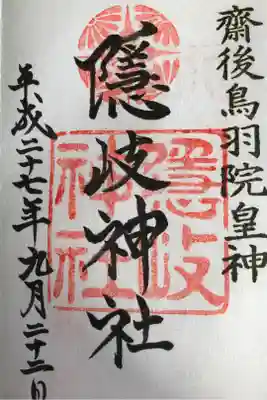 齋後鳥羽院皇神
隱岐神社
隠岐神社
平成二十七年九月二十二日